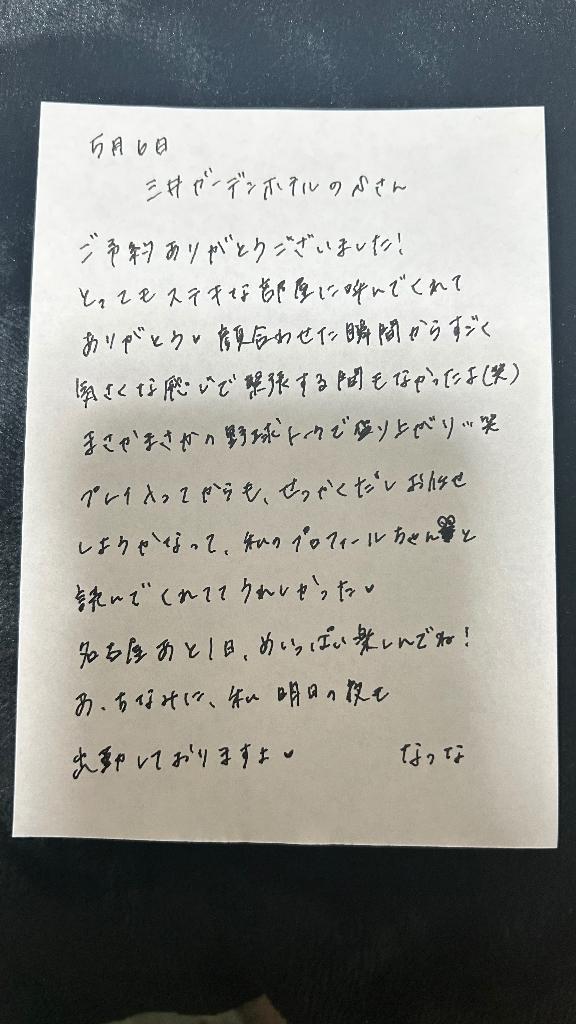 5月6日
三井ガーデンホテルのSさん
ご予約ありがとうございました!
とってもステキな部屋に呼んでくれて
ありがとう♥ 顔合わせた瞬間からすごく
気さくな感じで緊張する間もなかったよ(笑)
まさかまさかの野球トークで盛り上がり…笑
プレイ入ってからも、せっかくだしお任せ
しようかなって、私のプロフィールちゃんと
読んでくれててうれしかった♥
名古屋あと1日、めいっぱい楽しんでね!
あ、ちなみに、私 明日の夜も
出勤しておりますよ♥ なつな